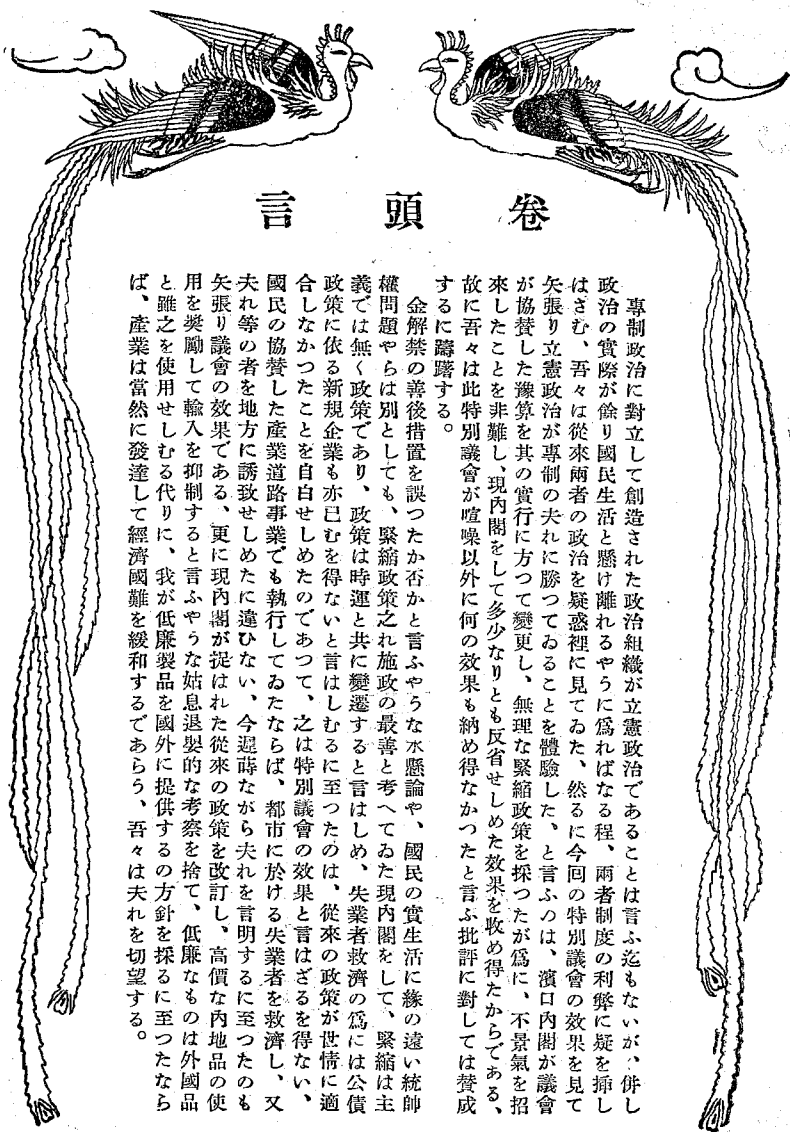 卷頭言
專制政治に對立して創造された政治組織が立憲政治であることは言ふ迄もないが、併し
政治の實際が餘り國民生活と懸け離れるやうに爲ればなる程、兩者制度の利弊に疑を挿し
はさむ、吾々は從來兩者の政治を疑惑裡に見てゐた、然るに今回の特別議會の效果を見て
矢張り立憲政治が專制の夫れに勝つてゐることを體驗した、と言ふのは、濱口内閣が議會
が協賛した豫算を其の實行に方つて變更し、無理な緊縮政策を採つたが爲に、不景氣を招
來したことを非難し、現内閣をして多少なりとも反省せしめた效果を收め得たからである、
故に吾々は此特別議會が喧噪以外に何の效果も納め得なかつたと言ふ批評に對しては賛成
するに躊躇する。
金解禁の善後措置を誤つたか否かと言ふやうな水懸論や、國民の實生活に緣の遠い統帥
權問題やらは別としても、緊縮政策之れ施政の最善と考へてゐた現内閣をして、緊縮は主
義では無く政策であり、政策は時運と共に變遷すると言はしめ、失業者救濟の爲には公債
政策に依る新規企業も亦已むを得ないと言はしむるに至つたのは、從來の政策が世情に適
合しなかつたことを自白せしめたのであつて、之は特別議會の效果と言はざるを得ない、
國民の協賛した產業道路事業でも執行してゐたならば、都市に於ける失業者を救濟し、又
夫れ等の者を地方に誘致せしめたに違ひない、今遲蒔ながら夫れを言明するに至つたのも
矢張り議會の效果である、更に現内閣が捉はれた從來の政策を改訂し、高價な内地品の使
用を奬勵して輸入を抑制すると言ふやうな姑息退嬰的な考察を捨て、低廉なものは外國品
と雖之を使用せしむる代りに、我が低廉製品を國外に提供するの方針を採るに至つたなら
ば、產業は當然に發達して經濟國難を緩和するであらう、吾々は夫れを切望する。